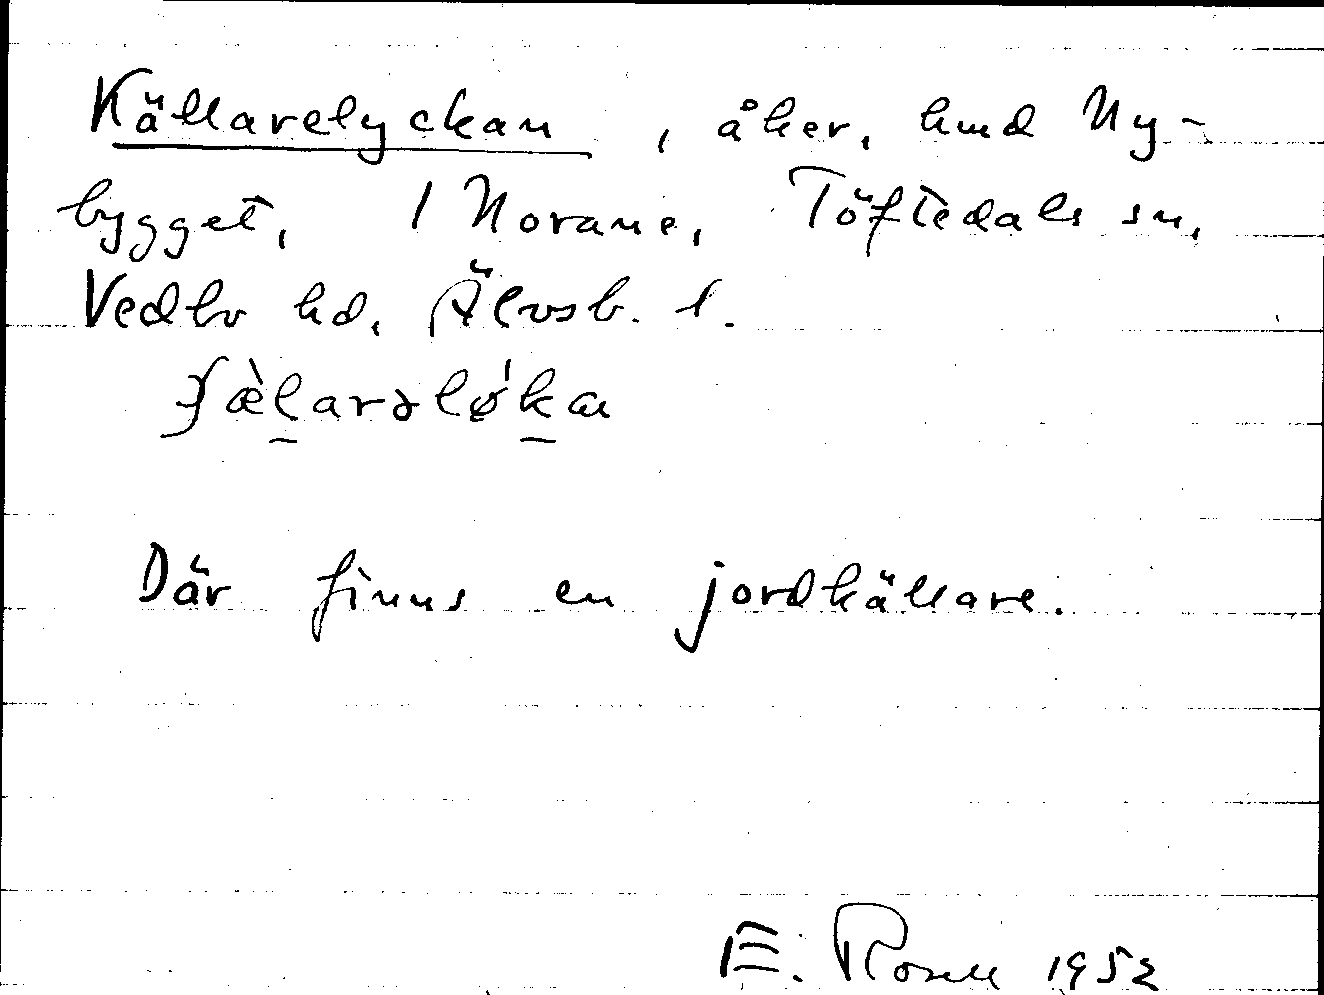 Källarelyckan, åker, hmd Ny-
bygget, 1 Norane, Töftedals sn,
Vedbo hd, Älvsb. l.
Där finns en jordkällare.
E. Rosell 1952